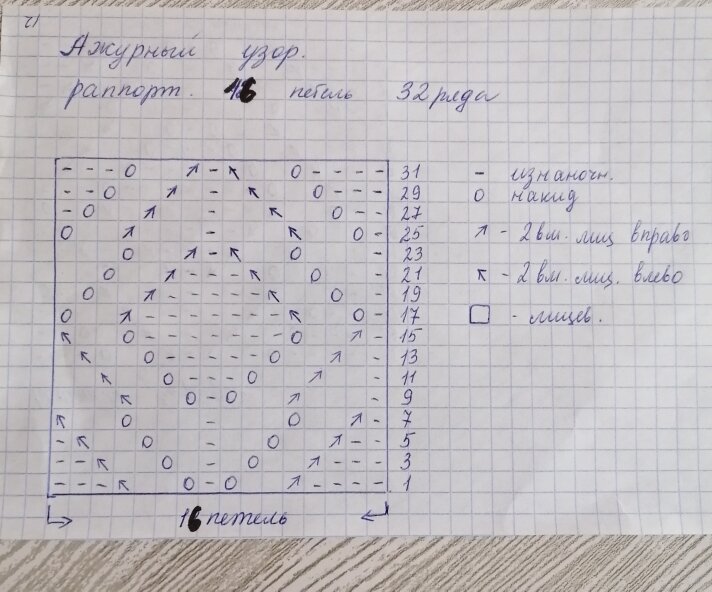 Ажурный узор.
раппорт. 16 петель 32 ряда
- - - O ↗ - ↖ O - - - - 31
- - O ↗ - ↖ O - - - 29
- O ↗ - ↖ O - - 27
O ↗ - ↖ O - 25
O ↗ - ↖ O - 23
O ↗ - - - ↖ O - 21
O ↗ - - - - - ↖ O - 19
O ↗ - - - - - - - ↖ O - 17
↖ O - - - - - - - O ↗ - 15
↖ O - - - - - O ↗ - 13
↖ O - - - O ↗ - 11
↖ O - O ↗ - 9
↖ O - O ↗ - 7
- ↖ O - O ↗ - - 5
- - ↖ O - O ↗ - - - 3
- - - ↖ O - O ↗ - - - - 1
16 петель
- изнаночн.
O накид
↗ - 2 вм. лиц вправо
↖ - 2 вм. лиц. влево
□ - лицев.